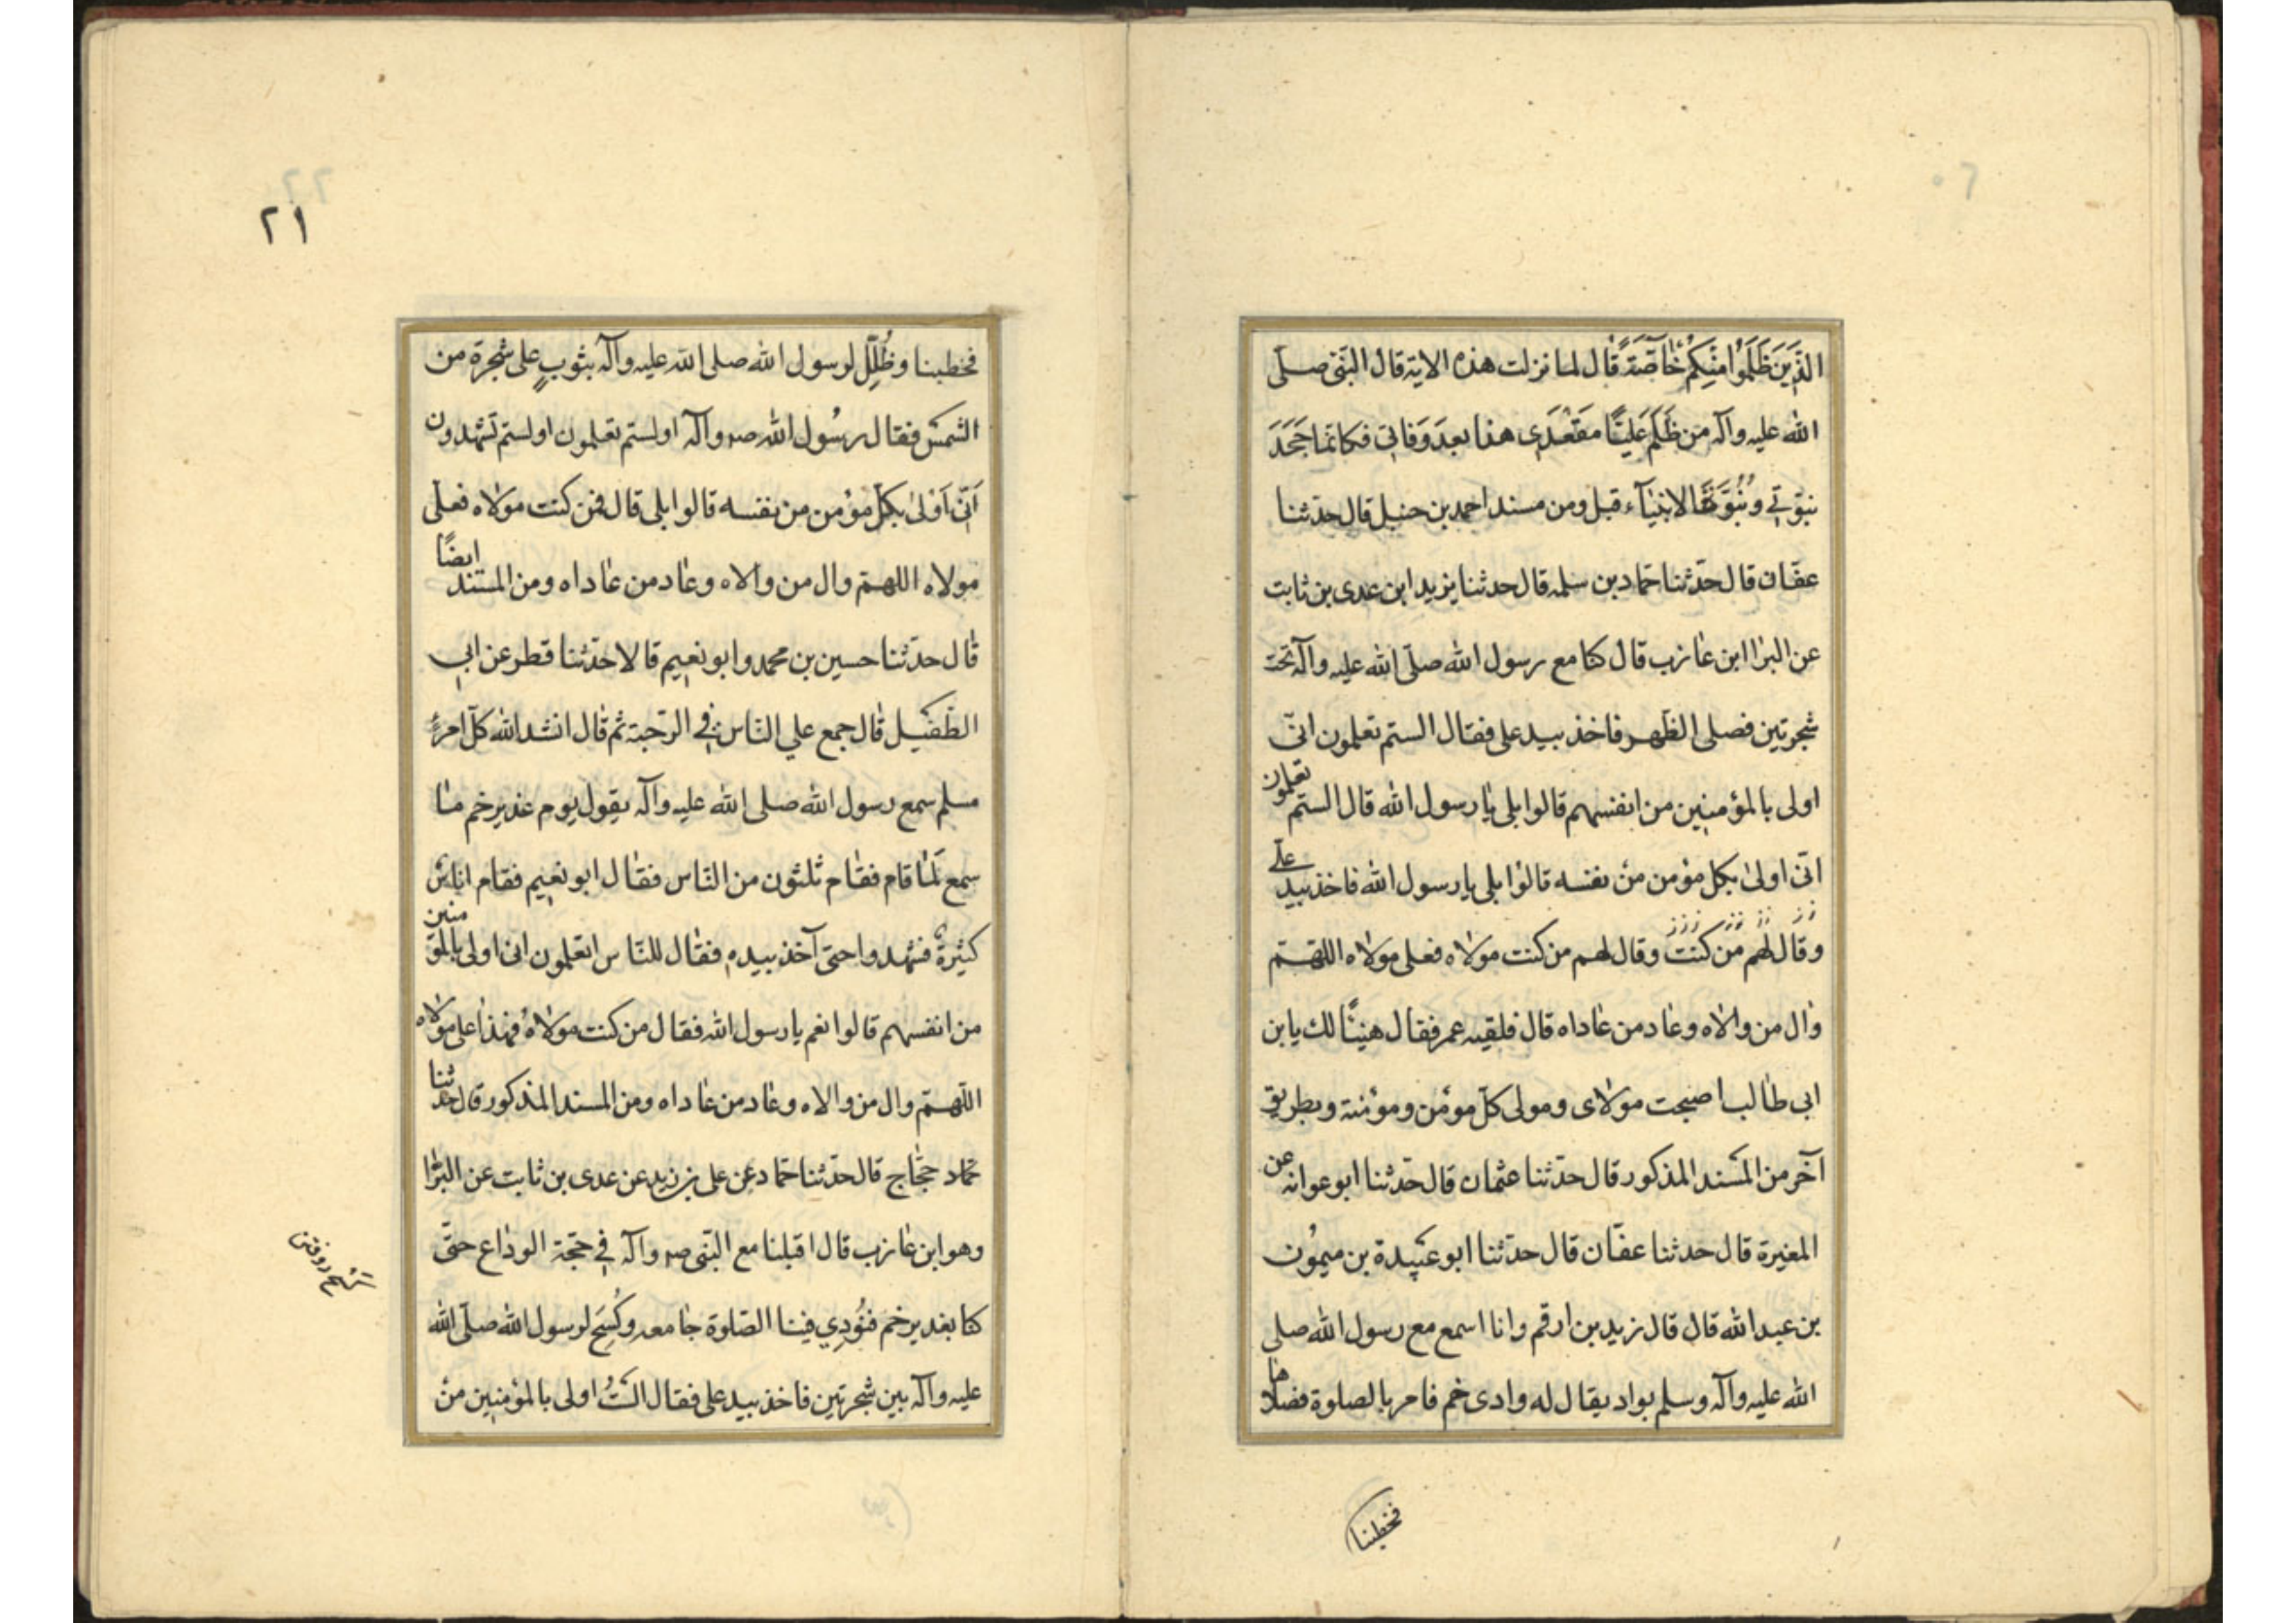 الَّذِينَ ظَلَمُوْا مِنْكُمْ خَاصَّةً قال لما نزلت هذه الاية قال النبى صلى
الله عليه وآله من ظَلَمَ عَليًّا مَقْعَدِى هذا بعدَ وَفاتى فكانّما جَحَدَ
نبوّتي ونُبُوَّة الانبيآء قبلى ومن مسند احمد بن حنبل قال حدثنا
عفّان قال حدّثنا حمّاد بن سلمه قال حدثنا يزيد ابن عدى بن ثابت
عن البرا ابن عازب قال كنا مع رسول الله صلّى الله عليه وآله تحت
شجرتين فصلى الظّهر فاخذ بيد على فقال الستم تعلمون انّى
اولى بالمؤمنين من انفسهم قالوا بلى يا رسول الله قال الستم تعلمون
انّى اولى بكل مؤمن من نفسه قالوا بلى يا رسول الله فاخذ بيد علي
وقال لهم من كنت وقال لهم من كنت مولاه فعلى مولاه اللهم
وال من والاه وعاد من عاداه قال فلقيه عمر فقال هنيئًا لك يا بن
ابى طالب اصبحت مولاى ومولى كلّ مؤمن ومؤمنة وبطريق
آخر من المسند المذكور قال حدّثنا عثمان قال حدّثنا ابو عوانه عن
المغيرة قال حدثنا عفّان قال حدّثنا ابو عبيدة بن ميمون
بن عبد الله قال قال زيد بن ارقم وانا اسمع مع رسول الله صلى
الله عليه وآله وسلم بواد يقال له وادى خم فامر بالصلوة فصلاها
فخطبنا
٢١
فخطبنا وظُلِّلَ لرسول الله صلى الله عليه وآله بثوبٍ على شجرة من
الشمس فقال رسُول الله صه وآله اولستم تعلمون اولستم تشهدون
اَنّى اَوْلىٰ بكلّ مؤمن من نفسه قالوا بلى قال فمن كنت مولاه فعلى
مولاه اللهمّ وال من والاه وعاد من عاداه ومن المسند ايضًا
قال حدثنا حسين بن محمد وابو نعيم قالا حدّثنا قطر عن ابى
الطّفيل قال جمع علي النّاس في الرّحبة ثم قال انشد الله كلّ امرءٍ
مسلم سمع رسول الله صلى الله عليه وآله يقول يوم غدير خم ما
سمع لمّا قام فقام ثلثون من النّاس فقال ابو نعيم فقام اناس
كثيرة فشهدوا حتى آخذ بيده فقال للنّاس اتعلمون انى اولى بالمؤمنين
من انفسهم قالوا نعم يا رسول الله فقال من كنت مولاهُ فهذا على مولاه
اللّهمّ وال من والاه وعاد من عاداه ومن المسند المذكور قال حدثنا
حمّاد حجّاج قال حدّثنا حمّاد عن على بن زيد عن عدى بن ثابت عن البرا
وهو ابن عازب قال اقبلنا مع النّبى صه وآله في حجّة الوداع حتّى
كنا بغدير خم فنُودِي فينا الصّلوة جامعه وكُسِحَ لرسول الله صلّى الله
عليه وآله بين شجرتين فاخذ بيد على فقال الستُ اولى بالمؤمنين من